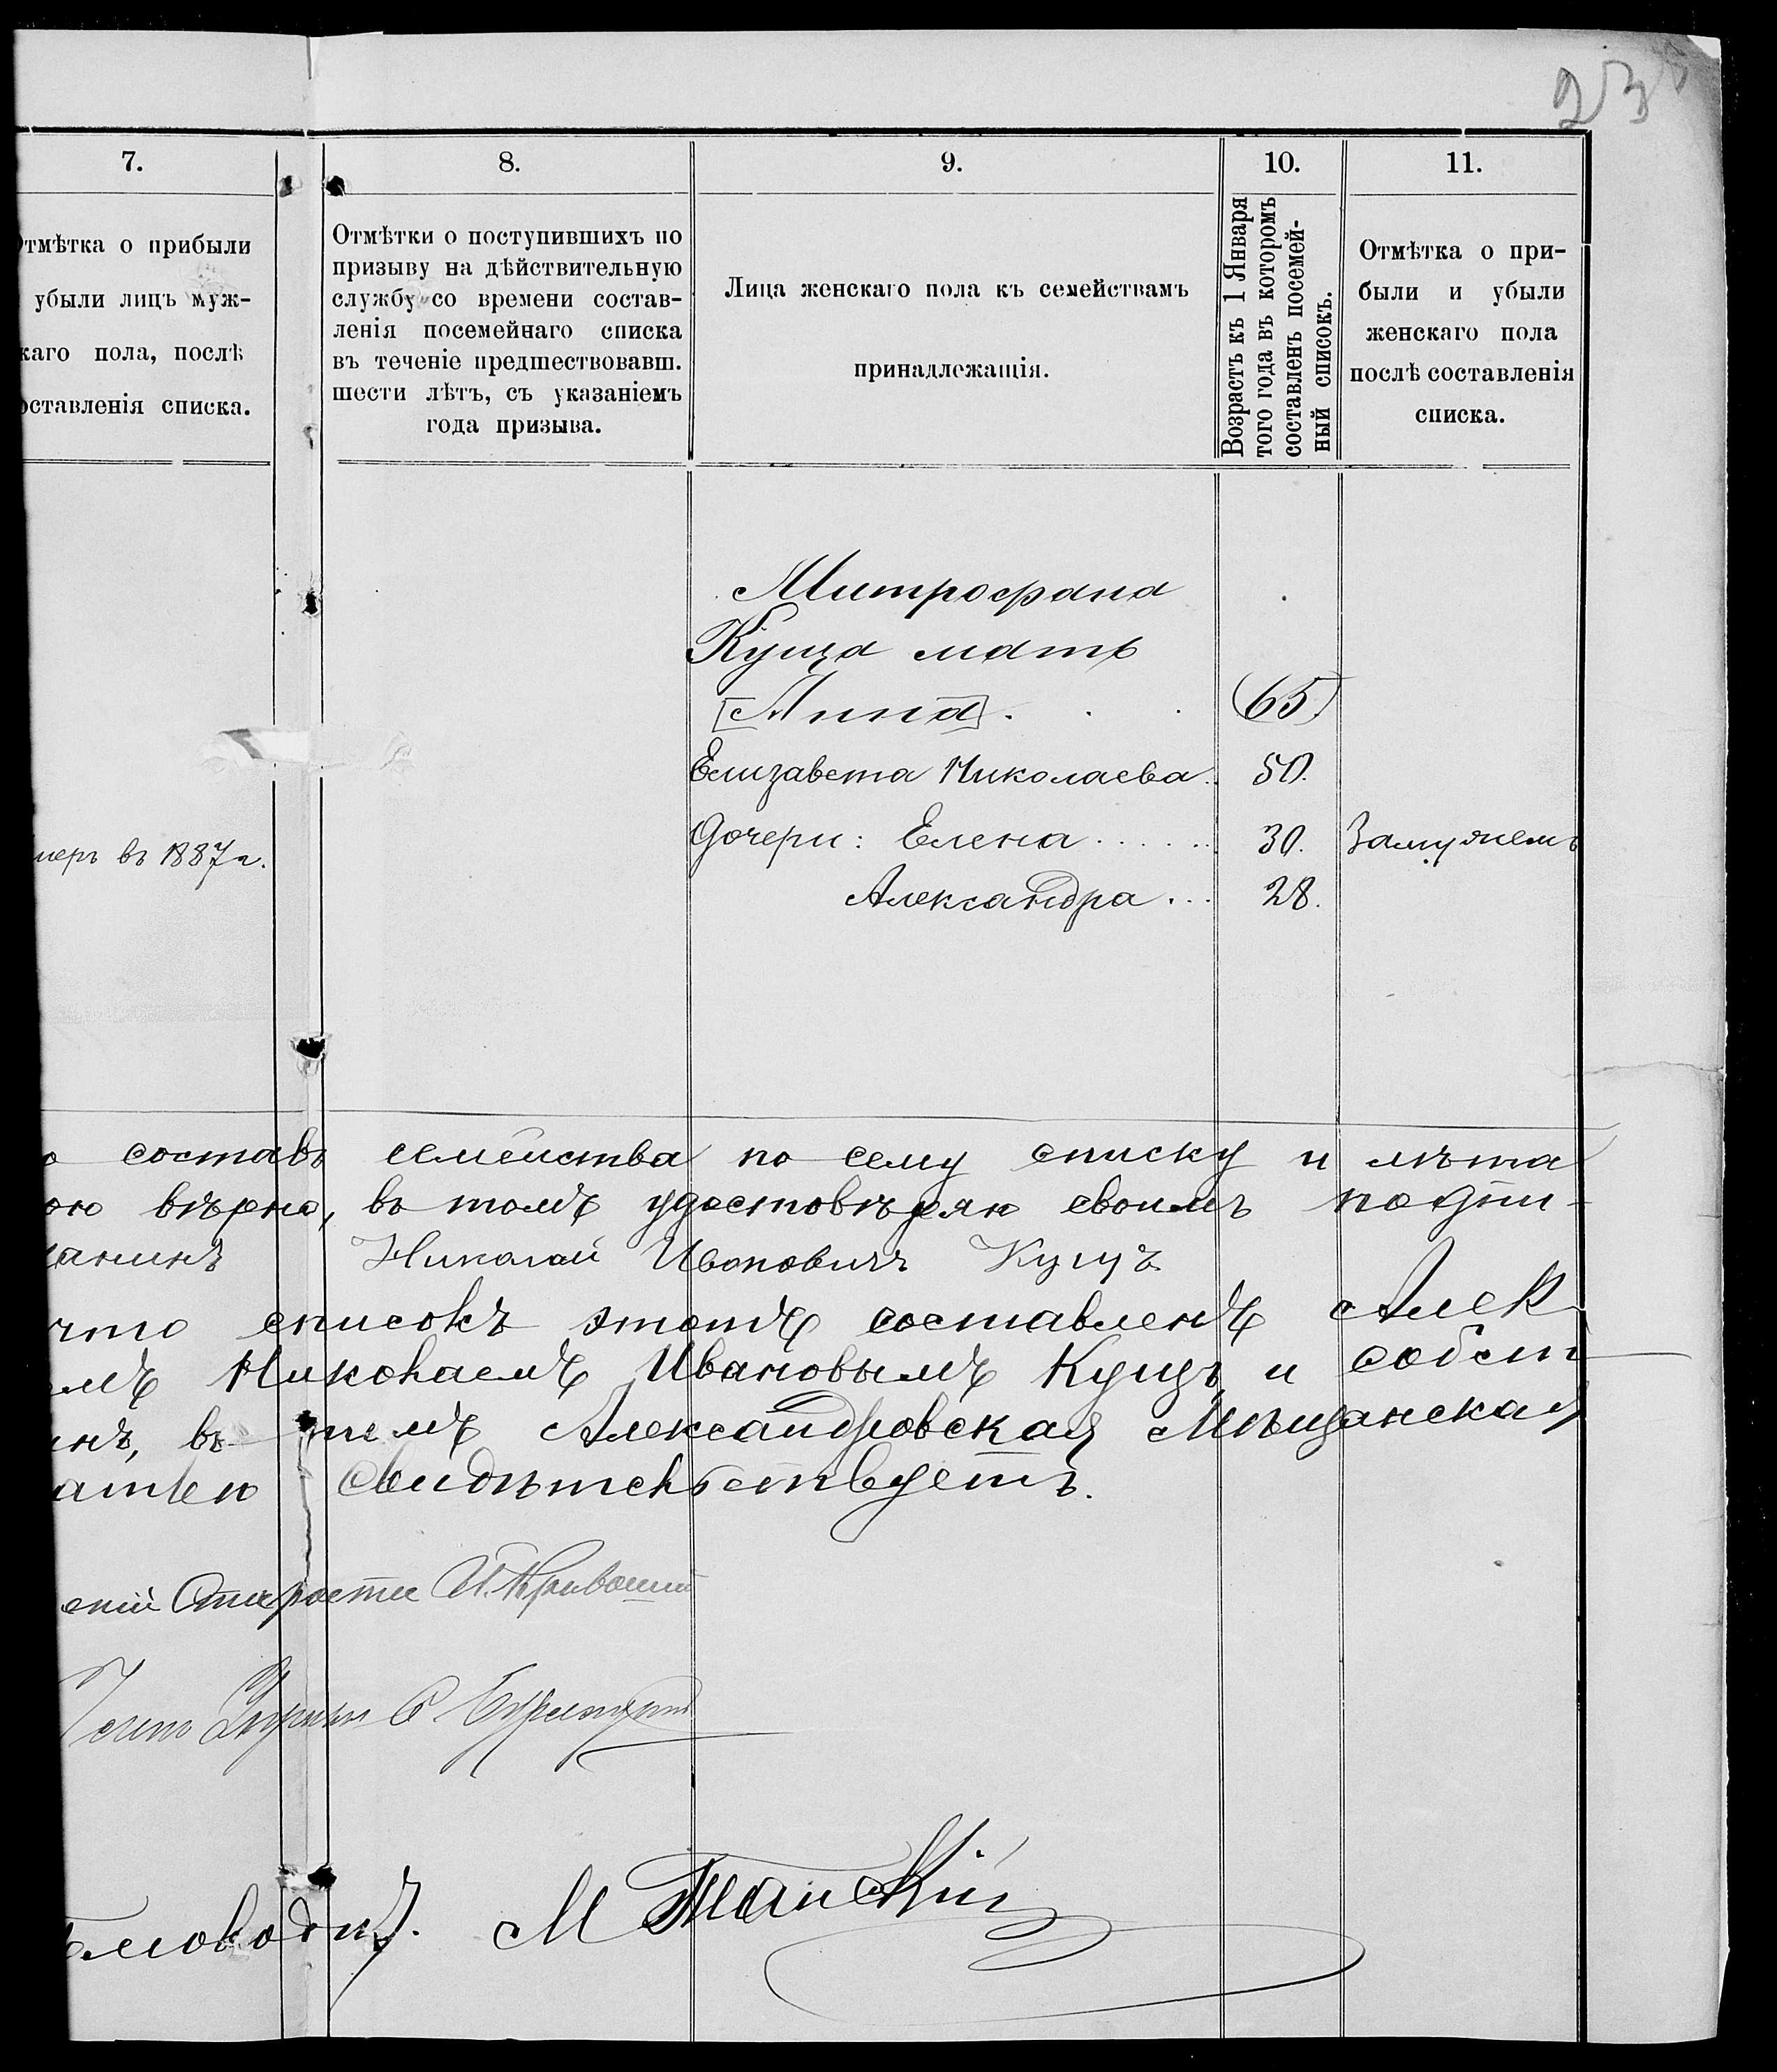 23
7.
8.
9.
10.
11.
Отмѣтка о прибыли
убыли лицъ муж-
каго пола, послѣ
оставленія списка.
Отмѣтки о поступившихъ по
призыву на дѣйствительную
службу со времени состав-
ленія посемейнаго списка
въ теченіе предшествовавш.
шести лѣтъ, съ указаніемъ
года призыва.
Лица женскаго пола къ семействамъ
принадлежащія.
Возрастъ къ 1 Января
того года въ которомъ
составленъ посемей-
ный списокъ.
Отмѣтка о при-
были и убыли
женскаго пола
послѣ составленія
списка.
Митрофана
Куща мать
[Анна] . . . (65.)
Елизавета Николаева. 50.
меръ въ 1887 г.
Дочери: Елена ...... 30. Замужемъ
Александра ... 28.
о составъ семейства по сему списку и лѣта
ою вѣрно, въ томъ удостовѣряю своимъ подпи-
анинъ Николай Ивановичъ Кущъ
что списокъ этотъ составленъ Алек
мъ Николаемъ Ивановымъ Кущъ и собст
нъ, въ чемъ Александровская Мѣщанская
атью свидѣтельствуетъ.
скій Староста
М Танскій